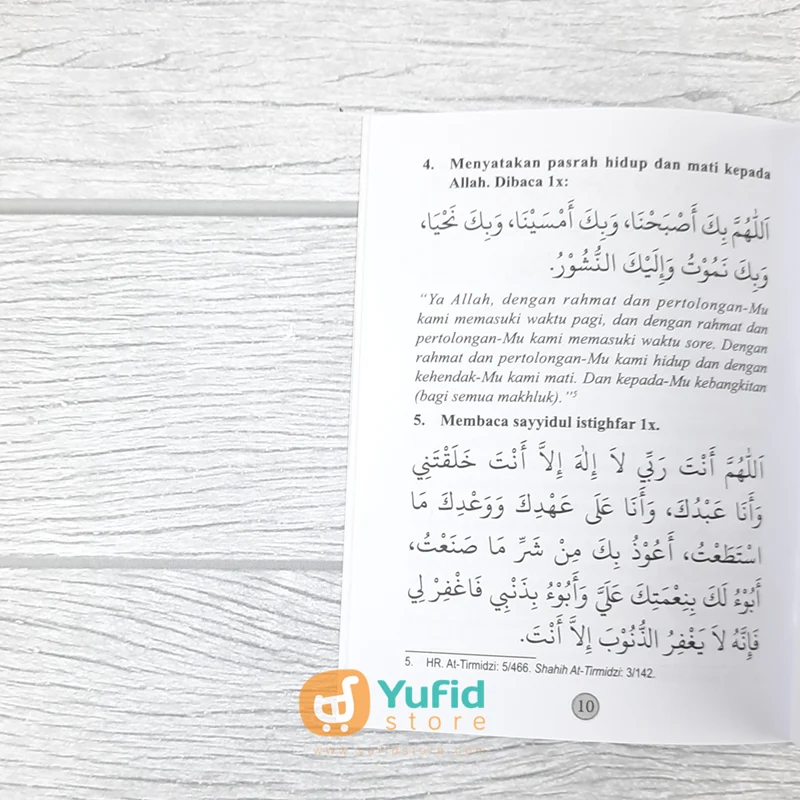 4. Menyatakan pasrah hidup dan mati kepada
Allah. Dibaca 1x:
اَللّٰهُمَّ بِكَ أَصْبَحْنَا، وَبِكَ أَمْسَيْنَا، وَبِكَ نَحْيَا،
وَبِكَ نَمُوْتُ وَإِلَيْكَ النُّشُوْرُ.
"Ya Allah, dengan rahmat dan pertolongan-Mu
kami memasuki waktu pagi, dan dengan rahmat dan
pertolongan-Mu kami memasuki waktu sore. Dengan
rahmat dan pertolongan-Mu kami hidup dan dengan
kehendak-Mu kami mati. Dan kepada-Mu kebangkitan
(bagi semua makhluk)."5
5. Membaca sayyidul istighfar 1x.
اَللّٰهُمَّ أَنْتَ رَبِّي لاَ إِلٰهَ إِلاَّ أَنْتَ خَلَقْتَنِي
وَأَنَا عَبْدُكَ، وَأَنَا عَلَى عَهْدِكَ وَوَعْدِكَ مَا
اسْتَطَعْتُ، أَعُوْذُ بِكَ مِنْ شَرِّ مَا صَنَعْتُ،
أَبُوْءُ لَكَ بِنِعْمَتِكَ عَلَيَّ وَأَبُوْءُ بِذَنْبِي فَاغْفِرْ لِي
فَإِنَّهُ لاَ يَغْفِرُ الذُّنُوْبَ إِلاَّ أَنْتَ.
5. HR. At-Tirmidzi: 5/466. Shahih At-Tirmidzi: 3/142.
10
Yufid
store